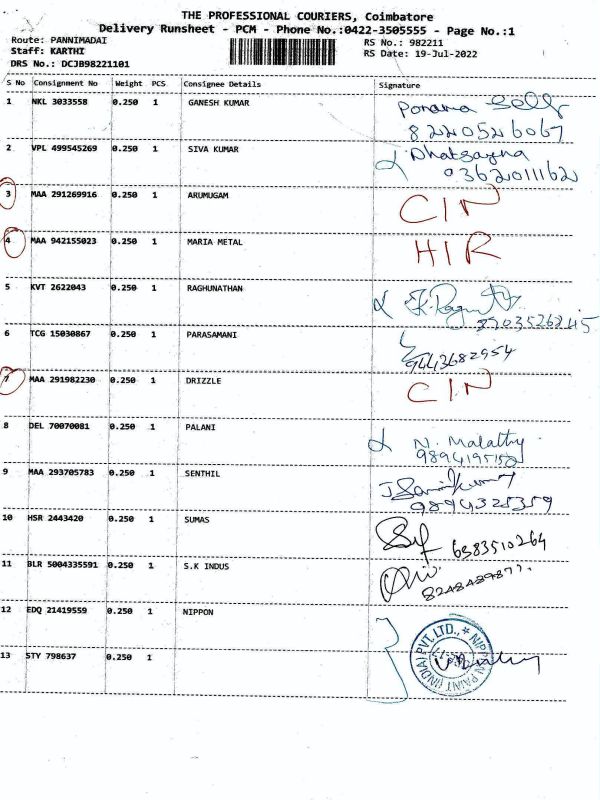 THE PROFESSIONAL COURIERS, Coimbatore
Delivery Runsheet - PCM - Phone No.:0422-3505555 - Page No.:1
Route: PANNIMADAI RS No.: 982211
Staff: KARTHI RS Date: 19-Jul-2022
DRS No.: DCJB98221101
S No Consignment No Weight PCS Consignee Details Signature
1 NKL 3033558 0.250 1 GANESH KUMAR
8220526067
2 VPL 499545269 0.250 1 SIVA KUMAR
9362011162
3 MAA 291269916 0.250 1 ARUMUGAM CIN
4 MAA 942155023 0.250 1 MARIA METAL HIR
5 KVT 2622043 0.250 1 RAGHUNATHAN
6 TCG 15030867 0.250 1 PARASAMANI
9443682954
7 MAA 291982230 0.250 1 DRIZZLE CIN
8 DEL 70070081 0.250 1 PALANI N. Malathy
9 MAA 293705783 0.250 1 SENTHIL
9894325359
10 HSR 2443420 0.250 1 SUMAS 6383510264
11 BLR 5004335591 0.250 1 S.K INDUS
12 EDQ 21419559 0.250 1 NIPPON
NIPPON PAINT (INDIA) PVT. LTD.,
13 STY 798637 0.250 1